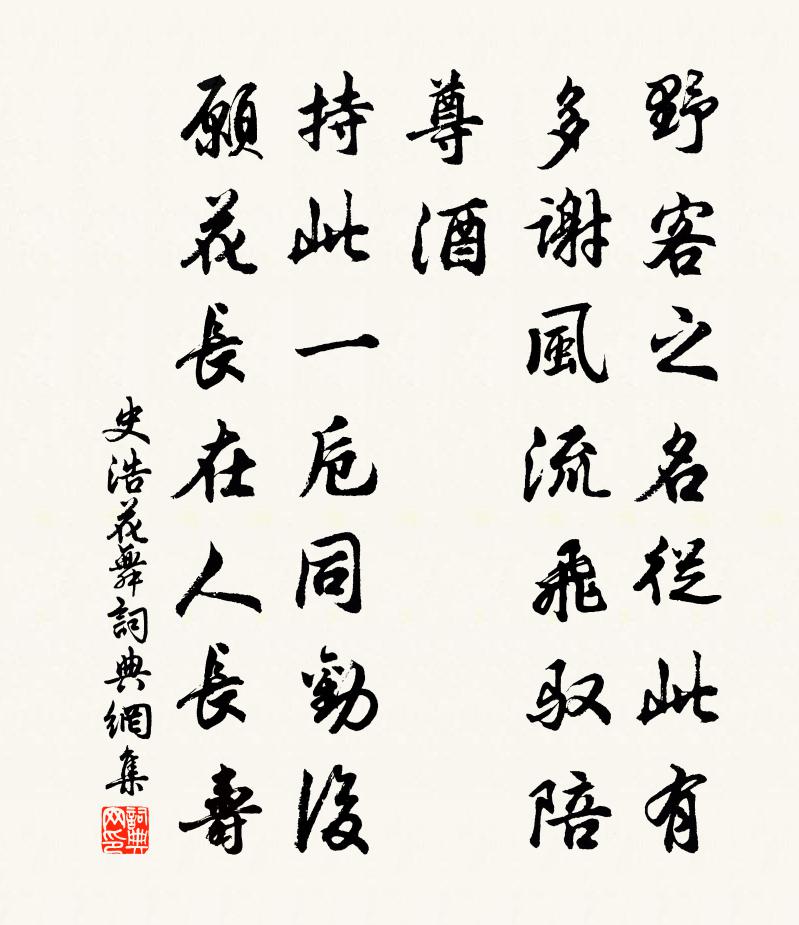 野客之名從此有
多謝風流飛馭陪
尊酒
持此一卮同勸後
願花長在人長壽
史浩花舞詞典網集
詞典网印